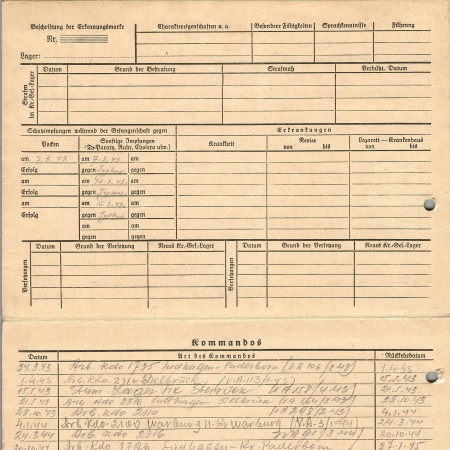 Beschriftung der Erkennungsmarke
Nr.
Lager:
Charaktereigenschaften u. a.
Besondere Fähigkeiten
Sprachkenntnisse
Führung
Strafen im Kr.-Gef.-Lager
Datum
Grund der Bestrafung
Strafmaß
Verbüßt, Datum
Schutzimpfungen während der Gefangenschaft gegen
Erkrankungen
Pocken
Sonstige Impfungen
(Ty-Paraty. Ruhr, Cholera usw.)
Krankheit
Revier
von bis
Lazarett — Krankenhaus
von bis
am 3.3.43. am 7.3.43. am
Erfolg gegen Typhus gegen
am am 10.3.43. am
Erfolg gegen Typhus gegen
am am 15.3.43. am
Erfolg gegen Typhus gegen
am am
gegen gegen
Versetzungen
Datum
Grund der Versetzung
Neues Kr.-Gef.-Lager
Versetzungen
Datum
Grund der Versetzung
Neues Kr.-Gef.-Lager
Kommandos
Datum
Art des Kommandos
Rückkehrdatum
24.3.43 Arb. Kdo 1735 Sudhagen-Paderborn 1.4.43
1.4.43 Arb. Kdo. 2316 Delbrück 15.5.43
15.5.43 21.5.43
21.5.43 Arb Kdo 2316 Sudhagen Delbrück 28.10.43
28.10.43 Arb. Kdo 2110 4.1.44
4.1.44 Arb Kdo. 2100 Warburg Kr. Warburg 24.3.44
24.3.44 Arb Kdo 2316 20.10.44
20.10.44 Arb Kdo Sudhagen Kr Paderborn 27.1.45